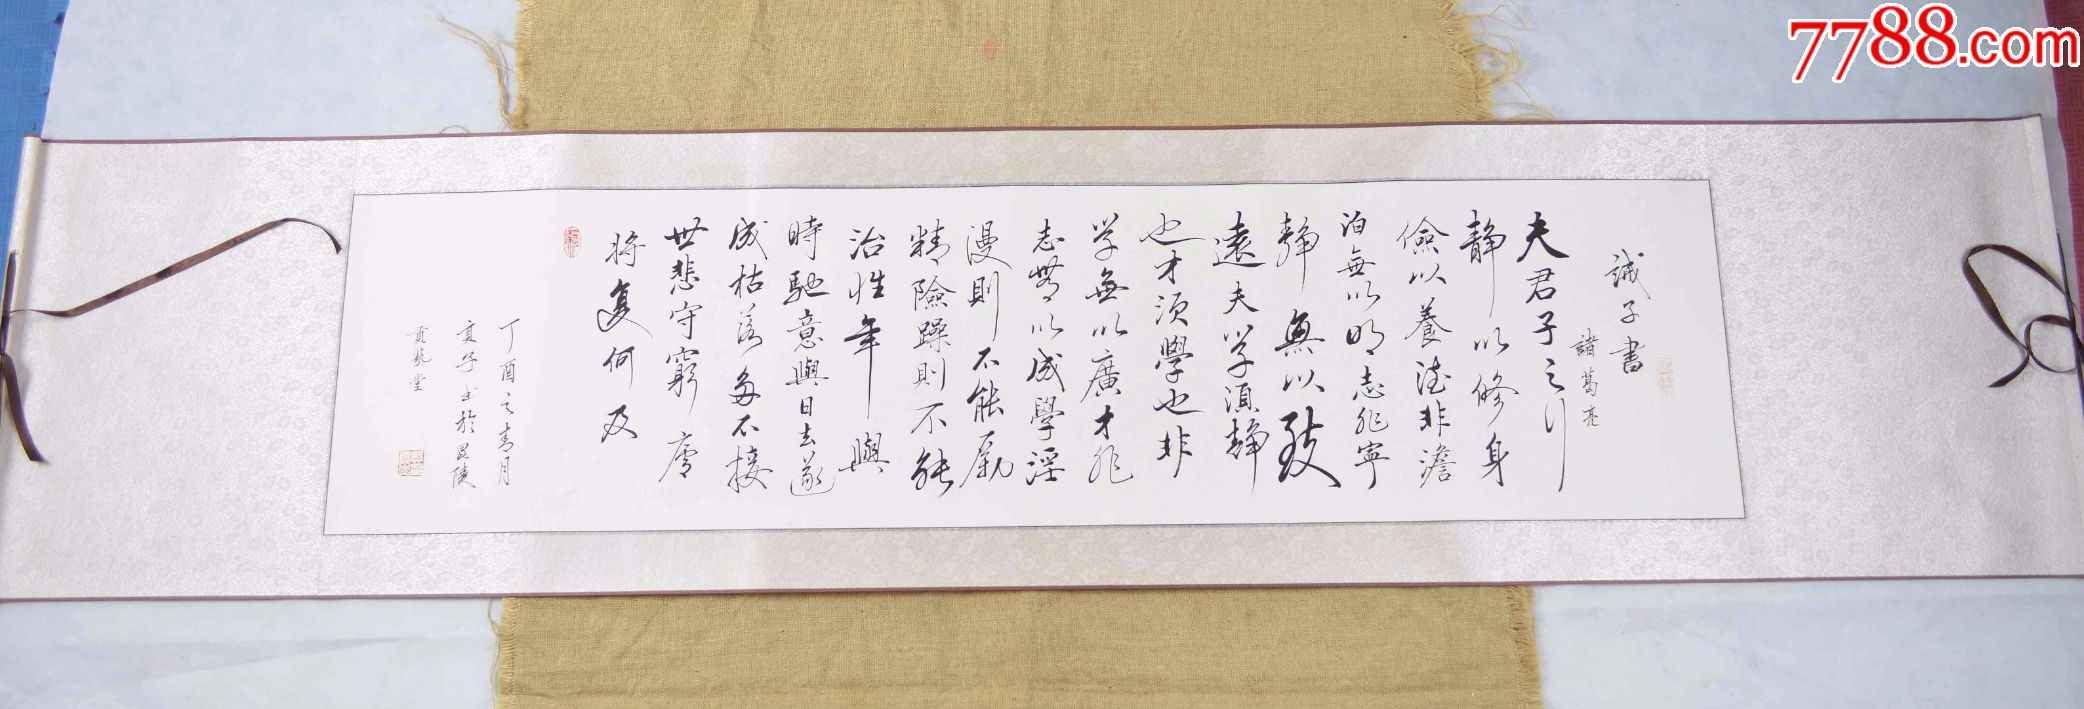 誡子書
諸葛亮
夫君子之行
靜以修身
儉以養德非澹
泊無以明志非寧
靜無以致
遠夫学須靜
也才須學也非
学無以廣才非
志無以成學淫
漫則不能励
精險躁則不能
治性年與
時馳意與日去遂
成枯落多不接
世悲守窮廬
將复何及
丁酉之青月
亥子書於毘陵
貢藝堂
7788.com